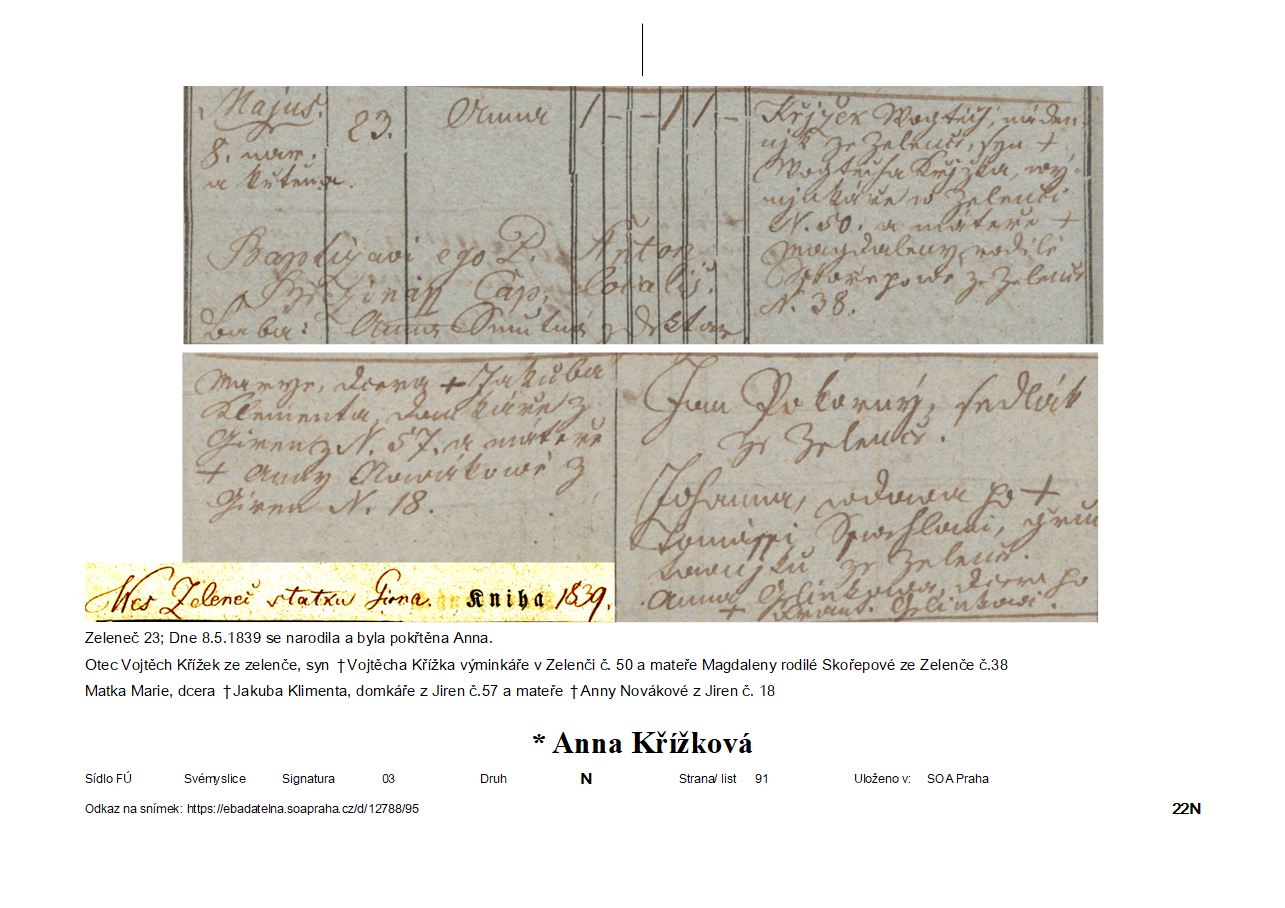 Majus.
8. nar.
a křtěna.
23.
Anna
/ – – / / –
Křjžek Wogtěch, náden-
njk ze Zelenči, syn †
Wogtěcha Křjžka, wý-
mjnkáře w Zelenči
N. 50. a mateře †
Magdaleny, rodilé
Skořepowé ze Zelenče
N. 38.
Baptizavi ego P. Anton
Cap. localis.
Baba: Anna Smutná z
Marye, dcera † Jakuba
Klementa, domkáře z
Giren N. 57. a mateře
† Anny Nowákowé z
Giren N. 18.
Jan Pokorný, sedlák
ze Zelenče.
Johanna, wdowa po †
ze Zelenče.
Anna Glinkowa, dcera po
† Frant. Glinkowi.
Wes Zeleneč statku Girna. Kniha 1839.
Zeleneč 23; Dne 8.5.1839 se narodila a byla pokřtěna Anna.
Otec Vojtěch Křížek ze zelenče, syn †Vojtěcha Křížka výminkáře v Zelenči č. 50 a mateře Magdaleny rodilé Skořepové ze Zelenče č.38
Matka Marie, dcera †Jakuba Klimenta, domkáře z Jiren č.57 a mateře †Anny Novákové z Jiren č. 18
* Anna Křížková
Sídlo FÚ Svémyslice Signatura 03 Druh N Strana/ list 91 Uloženo v: SOA Praha
Odkaz na snímek: https://ebadatelna.soapraha.cz/d/12788/95 22N